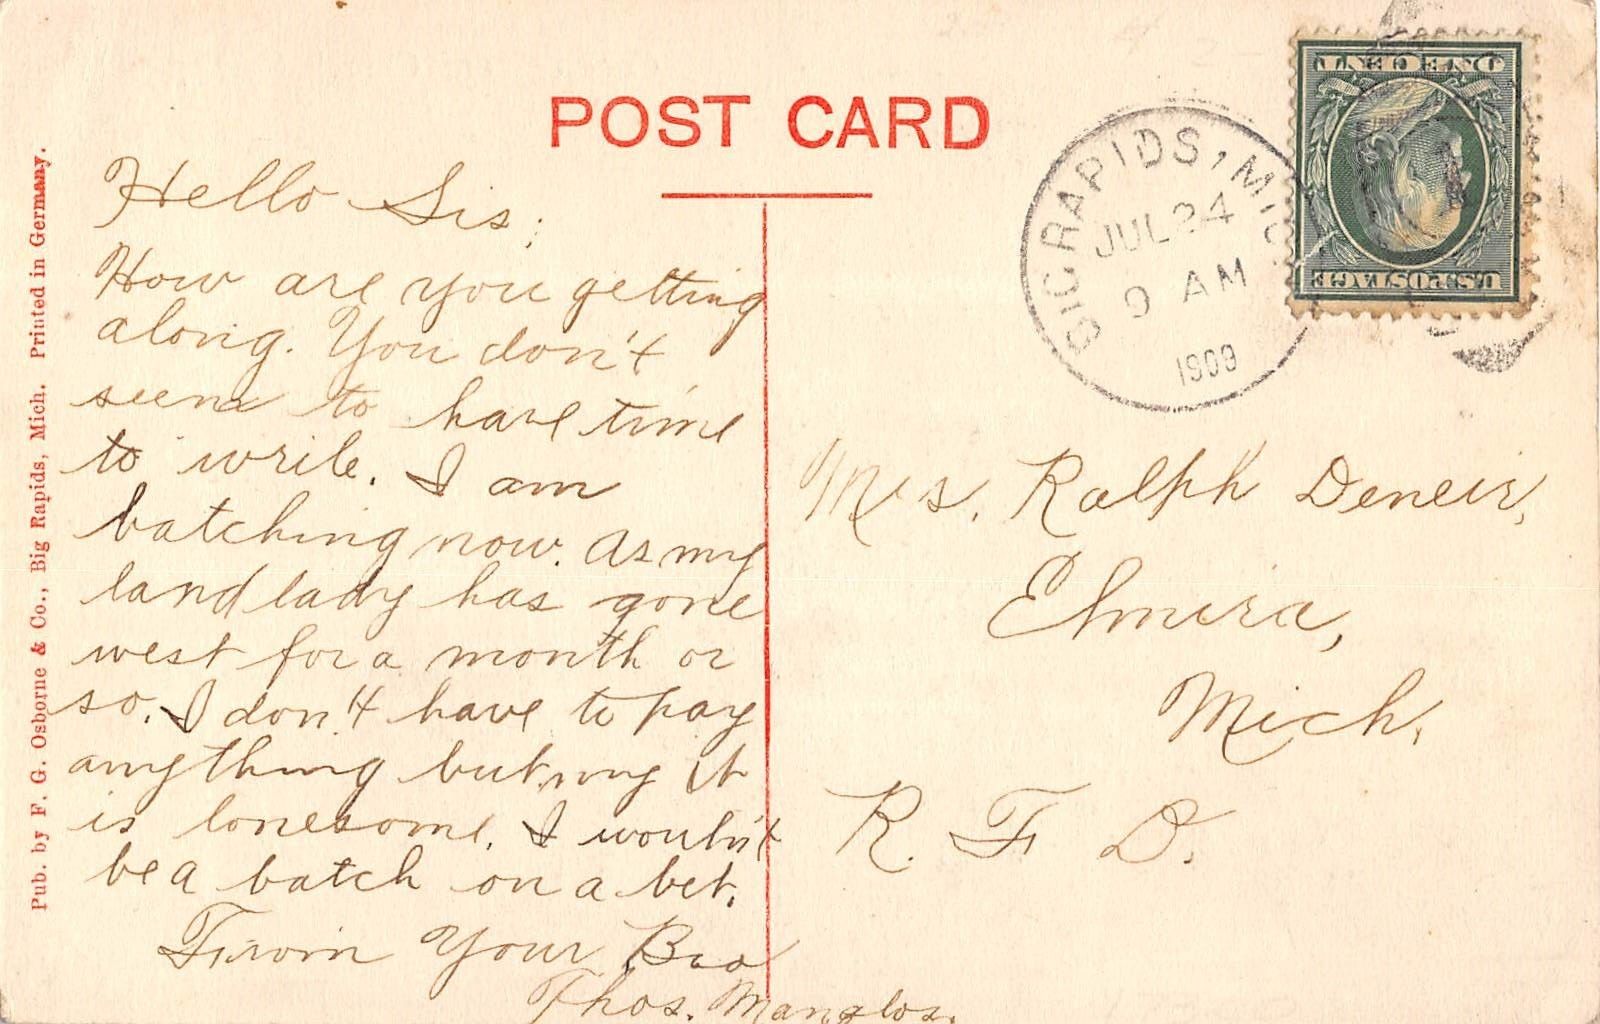 POST CARD
Hello Sis:
How are you getting
along. You don't
seem to have time
to write. I am
batching now. As my
land lady has gone
west for a month or
so. I don't have to pay
anything but my it
is lonesome. I wouldn't
be a batch on a bet.
From Your Bro
Thos.
BIG RAPIDS, MICH.
JUL 24
9 AM
1909
ONE CENT
U.S. POSTAGE
Mrs. Ralph Deneir,
Elmira,
Mich.
R. F. D.
Pub. by F. G. Osborne & Co., Big Rapids, Mich. Printed in Germany.